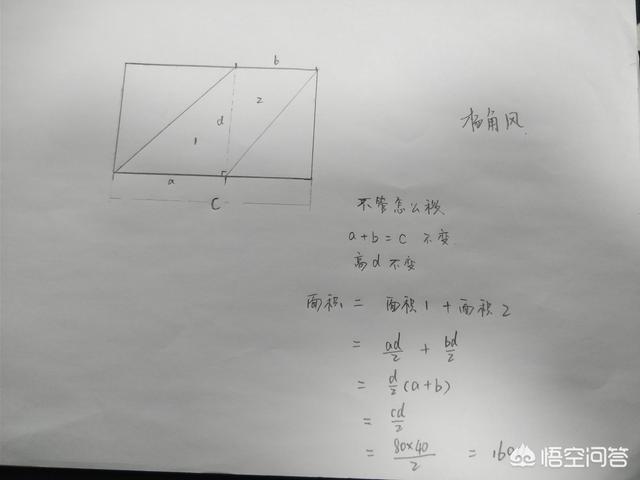 b
2
d
1
a
C
杨角风
不管怎么移
a+b=c 不变
高d不变
面积 = 面积1+面积2
= ad/2 + bd/2
= d/2 (a+b)
= cd/2
= 80×40/2 = 160
悟空问答